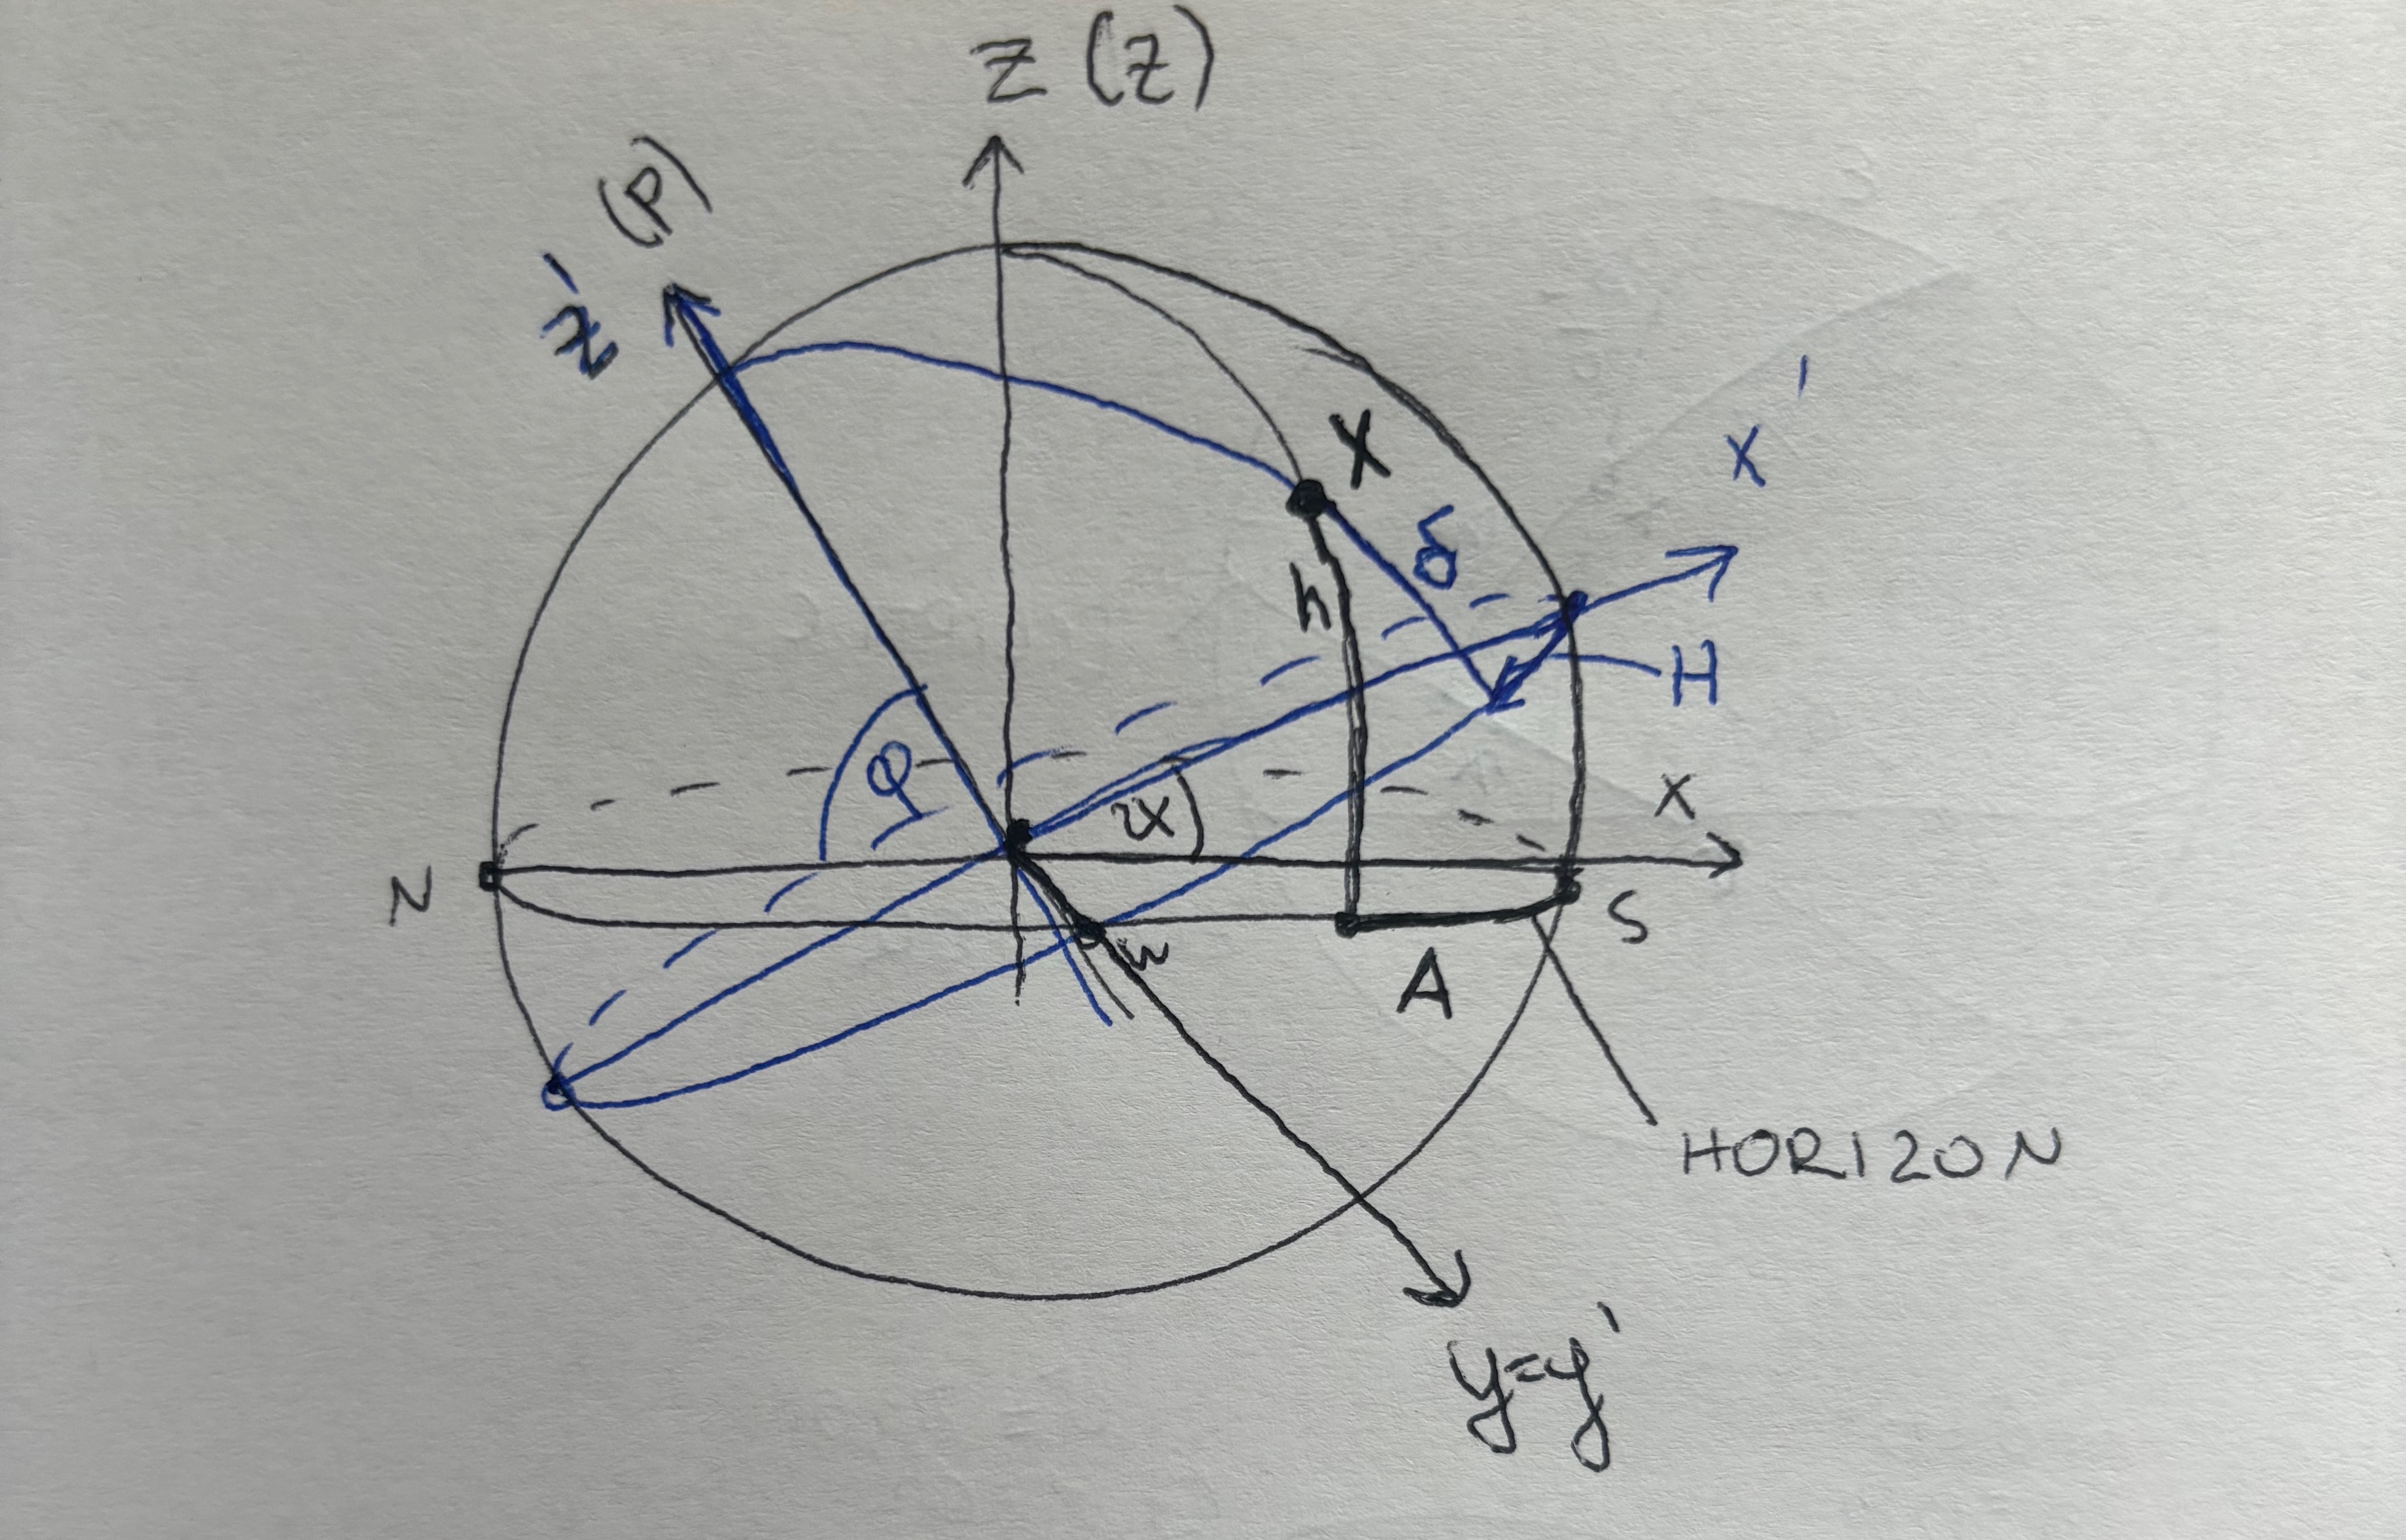 Z (Z)
(P)
z'
X
x'
δ
h
H
φ
χ
x
N
S
W
A
HORIZON
y=y'